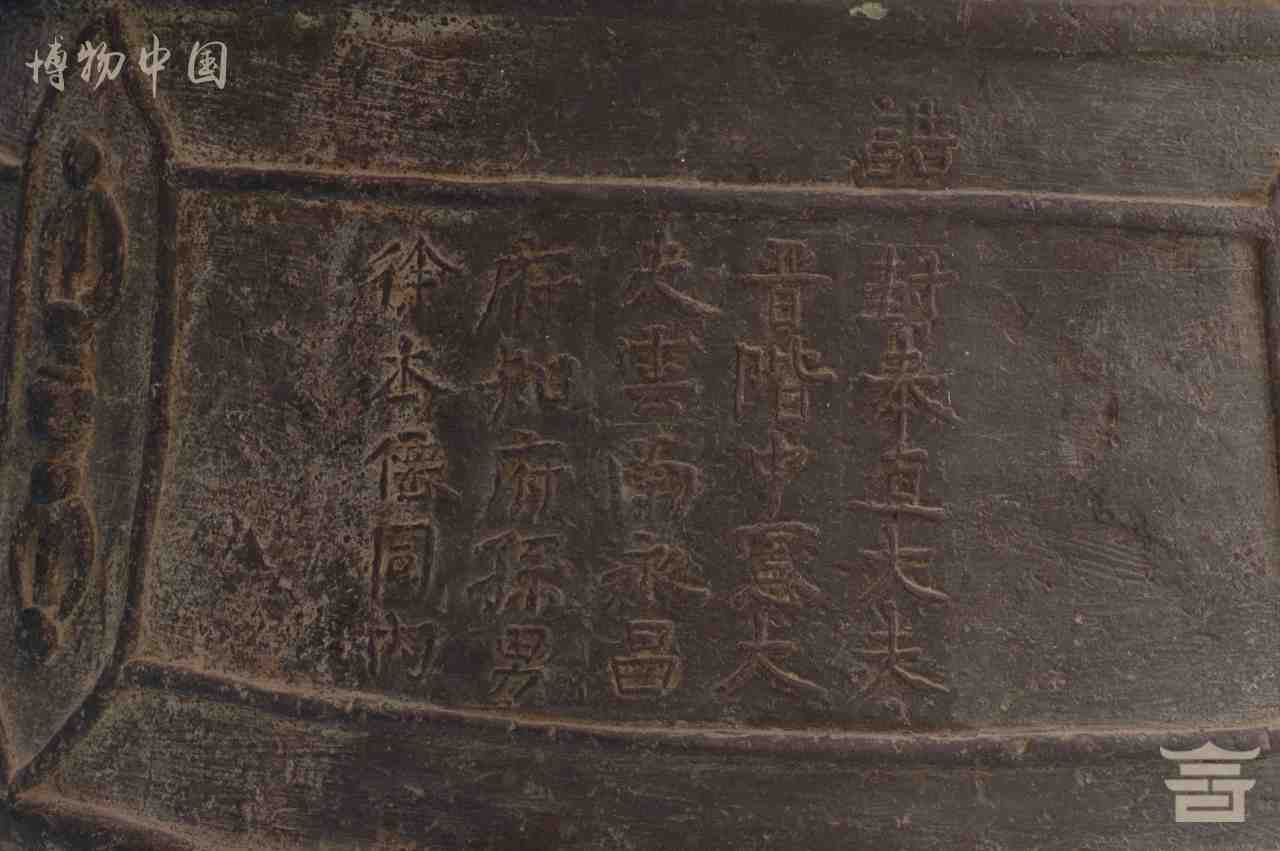 博物中国
誥
封奉直大夫
晋階中憲大
夫雲南永昌
府知府孫男
徐本僊同內